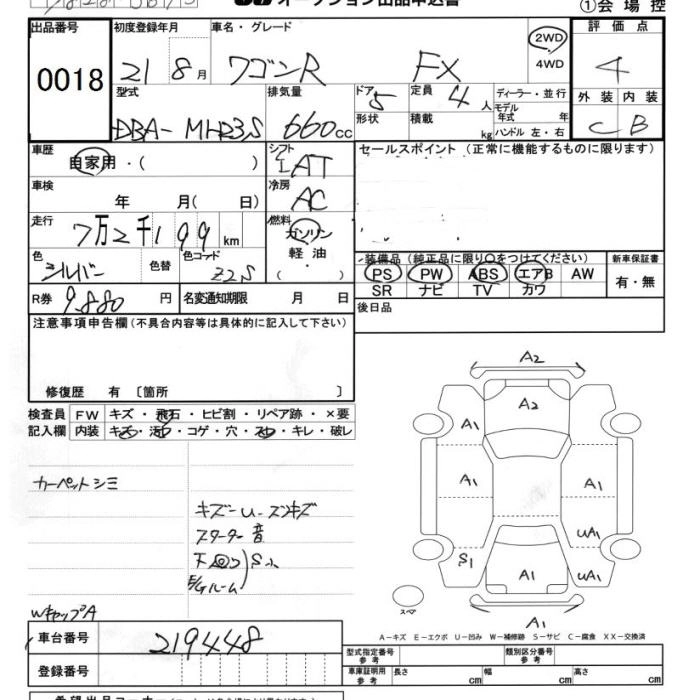 オークション出品申込書 ①会場控
出品番号 初度登録年月 車名・グレード 評価点
0018 21 8月 ワゴンR FX 2WD 4WD 4
型式 排気量 ドア 5 定員 4人 ディーラー・並行 外装 内装
DBA-MH23S 660cc 形状 積載 kg モデル年式 年 ハンドル 左・右 C B
車歴 シフト セールスポイント (正常に機能するものに限ります)
自家用・( ) IAT
車検 冷房
年 月( 日) AC
走行 燃料
7万2千199km ガソリン
色 色替 色コード 軽油 装備品 (純正品に限り○をつけてください) 新車保証書
シルバー Z2S ( ) PS PW ABS エアB AW 有・無
SR ナビ TV カワ
R券 9.880円 名変通知期限 月 日 後日品
注意事項申告欄(不具合内容等は具体的に記入して下さい)
修復歴 有 〔箇所 〕
検査員 FW キズ・飛石・ヒビ割・リペア跡・×要
記入欄 内装 キズ・汚・コゲ・穴・スレ・キレ・破レ
カーペットシミ
キズーU-スンキズ
スターター音
下回り S小
E/Gルーム
WキャップA
A2
A2
A1
A1 A1
UA1
S1 A1 UA1
スペア
A1
A-キズ E-エクボ U-凹み W-補修跡 S-サビ C-腐食 XX-交換済
車台番号 219448
型式指定番号 参考 類別区分番号 参考
登録番号 車庫証明用 参考 長さ cm 幅 cm 高さ cm